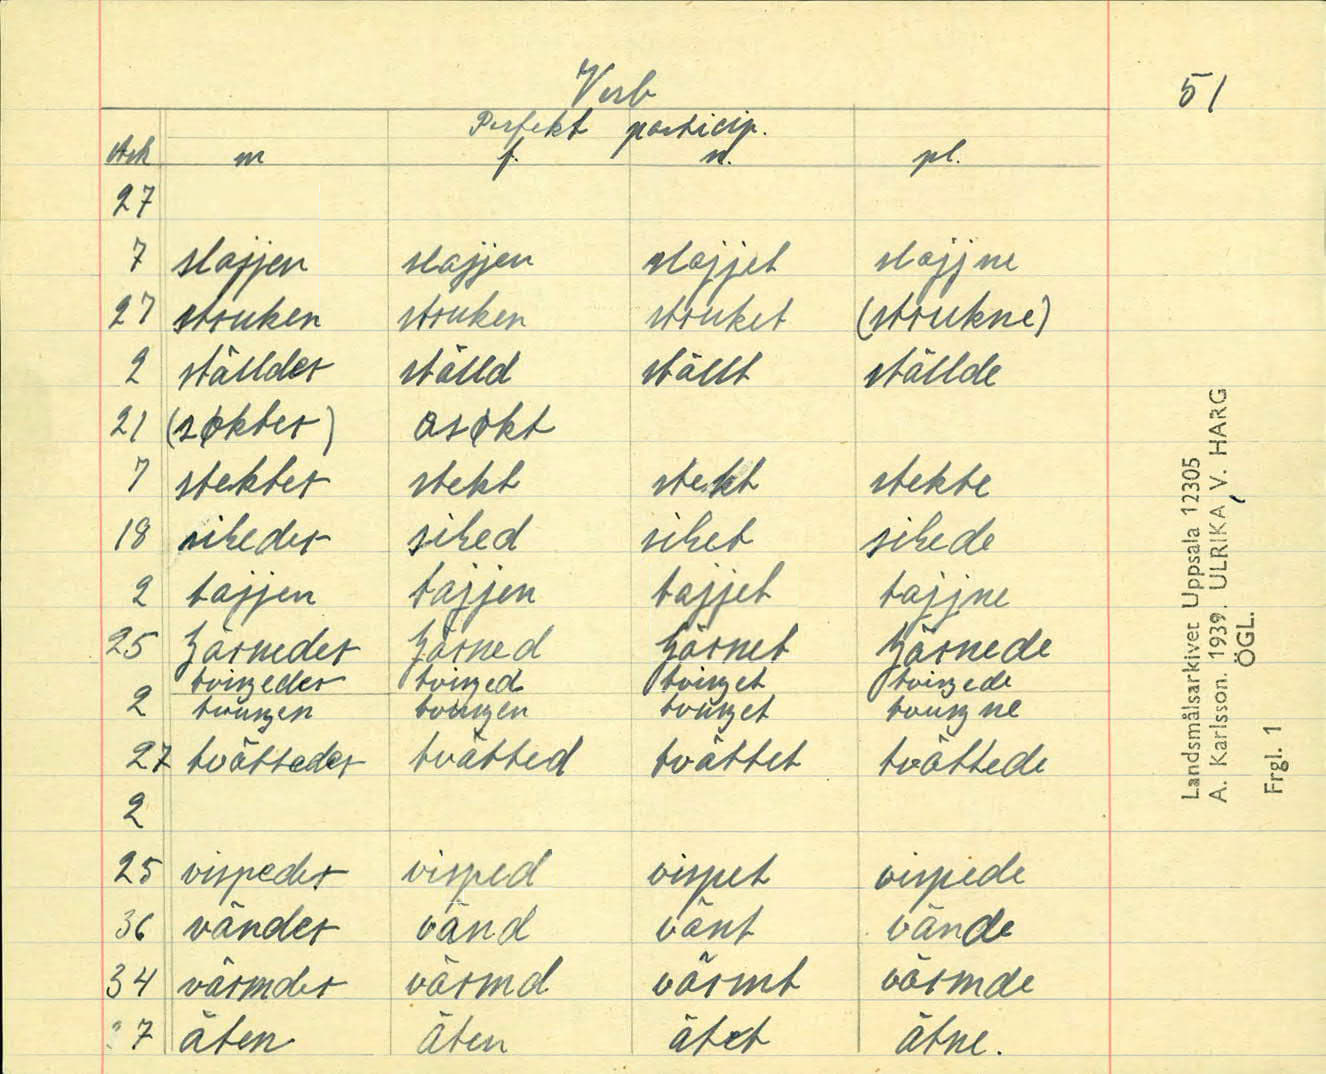 Verb 51
Perfekt particip.
Ark m f. n. pl.
27
7 slajjen slajjen slajjet slajjne
27 struken struken struket (strukne)
2 ställder ställd ställt ställde
21 (søkter) osøkt
7 stekter stekt stekt stekte
18 sikeder siked siket sikede
2 tajjen tajjen tajjet tajjne
25 järneder järned järnet järnede
tvinzeder tvinzed tvinzet tvinzede
2 tvunzen tvunzen tvunzet tvunzne
27 tvätteder tvätted tvättet tvättede
2
25 vispeder visped vispet vispede
36 vänder vänd vänt vände
34 värmder värmd värmt värmde
7 äten äten ätet ätne.
Landsmålsarkivet Uppsala 12305
A. Karlsson. 1939. ULRIKA, V. HARG
ÖGL.
Frgl. 1